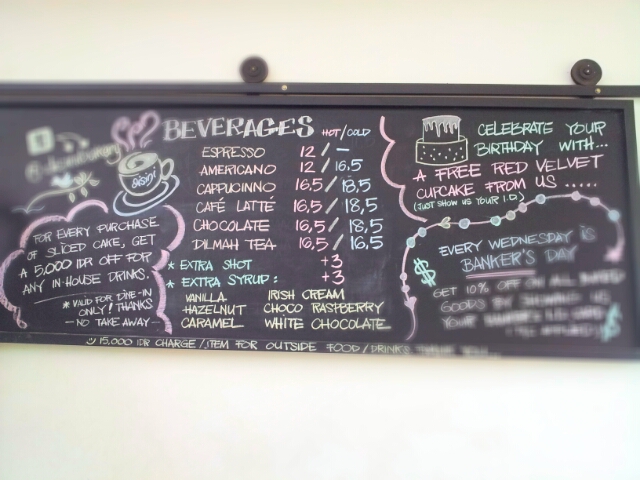 FOR EVERY PURCHASE
OF SLICED CAKE, GET
A 5,000 IDR OFF FOR
ANY IN-HOUSE DRINKS.
* VALID FOR DINE-IN
ONLY! THANKS
- NO TAKE AWAY -
BEVERAGES HOT/COLD
ESPRESSO 12 / -
AMERICANO 12 / 16.5
CAPPUCINNO 16,5 / 18,5
CAFÉ LATTÉ 16,5 / 18,5
CHOCOLATE 16,5 / 18,5
DILMAH TEA 16,5 / 16,5
* EXTRA SHOT +3
* EXTRA SYRUP: +3
VANILLA IRISH CREAM
HAZELNUT CHOCO RASPBERRY
CARAMEL WHITE CHOCOLATE
CELEBRATE YOUR
BIRTHDAY WITH...
A FREE RED VELVET
CUPCAKE FROM US .....
(JUST SHOW US YOUR I.D)
EVERY WEDNESDAY IS
BANKER'S DAY
GET 10% OFF ON ALL BAKED
GOODS BY
YOUR
15,000 IDR CHARGE/ITEM FOR OUTSIDE FOOD/DRINKS